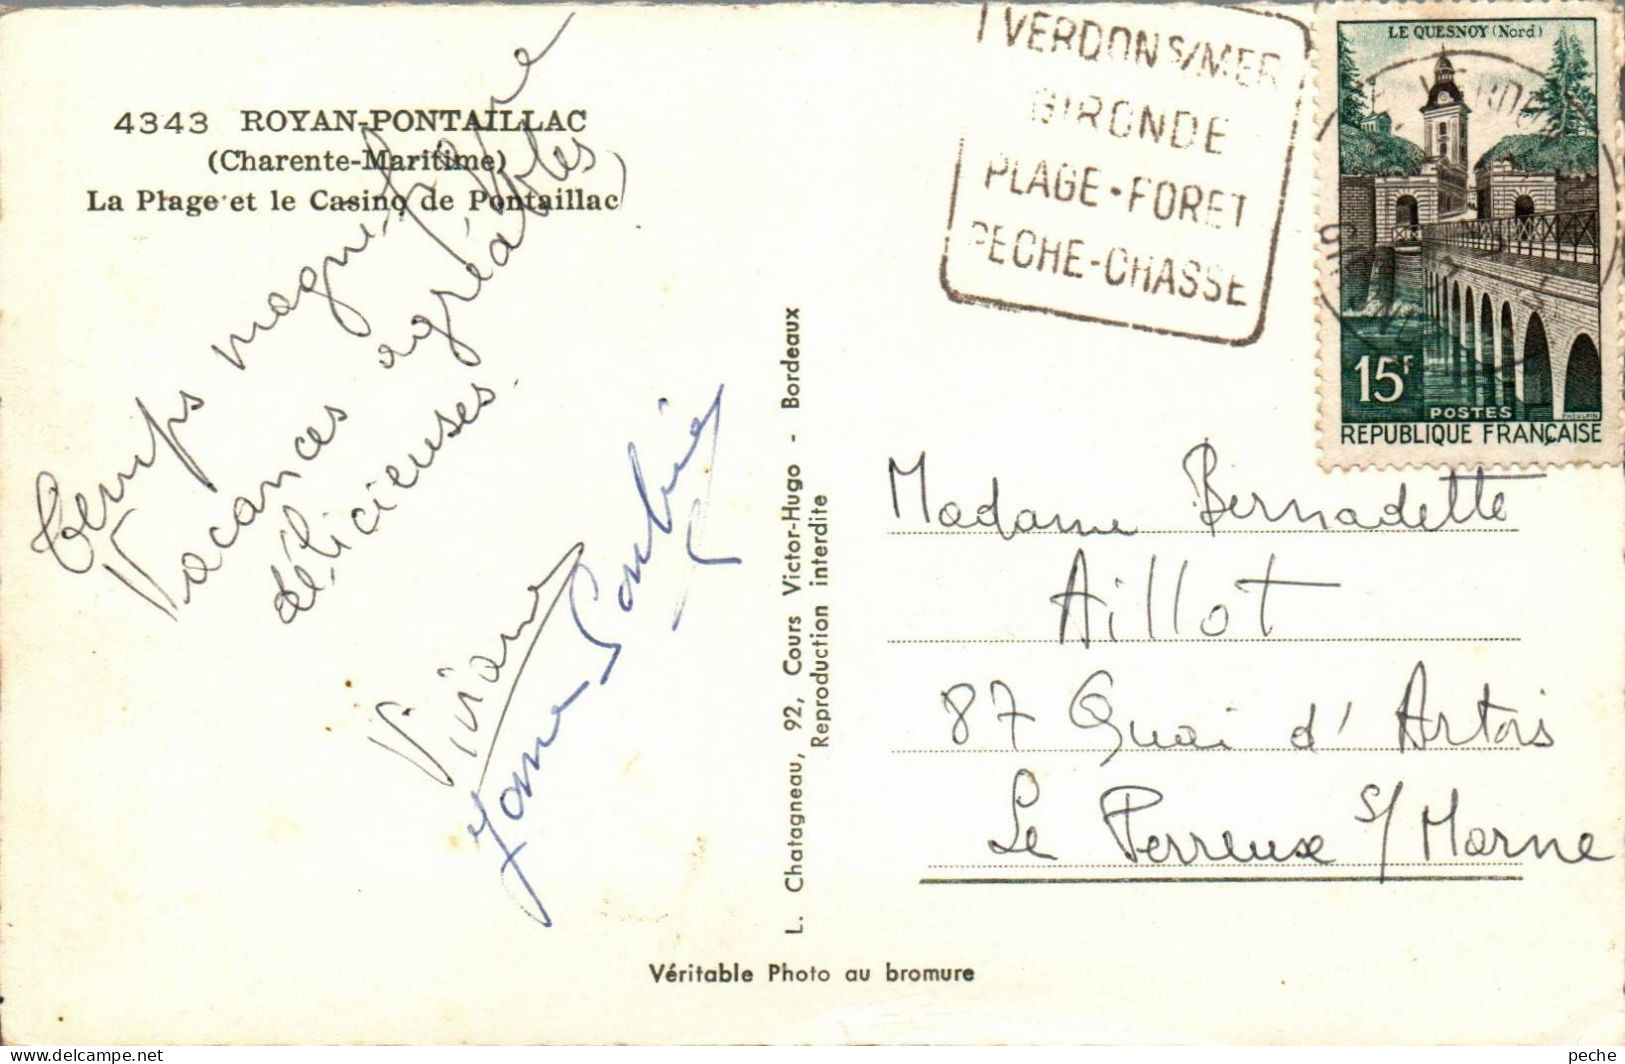 4343 ROYAN-PONTAILLAC
(Charente-Maritime)
La Plage et le Casino de Pontaillac
Temps magnifique
Vacances agréables
délicieuses.
VERDON S/MER
GIRONDE
PLAGE-FORET
PECHE-CHASSE
LE QUESNOY (Nord)
15F
POSTES
RÉPUBLIQUE FRANÇAISE
L. Chatagneau, 92, Cours Victor-Hugo - Bordeaux
Reproduction interdite
Madame Bernadette
Aillot
87 Quai d'Artois
Le Perreux s/ Marne
Véritable Photo au bromure
peche